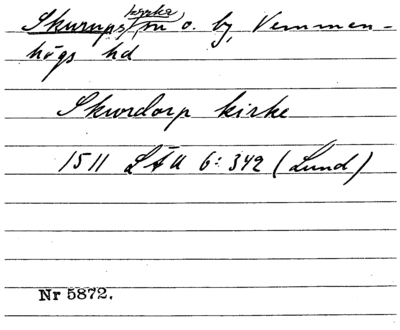 Skurups kyrka sn o. by, Vemmen-
högs hd
Skurdorp kirke
1511 LÄU 6:342 (Lund)
Nr 5872.